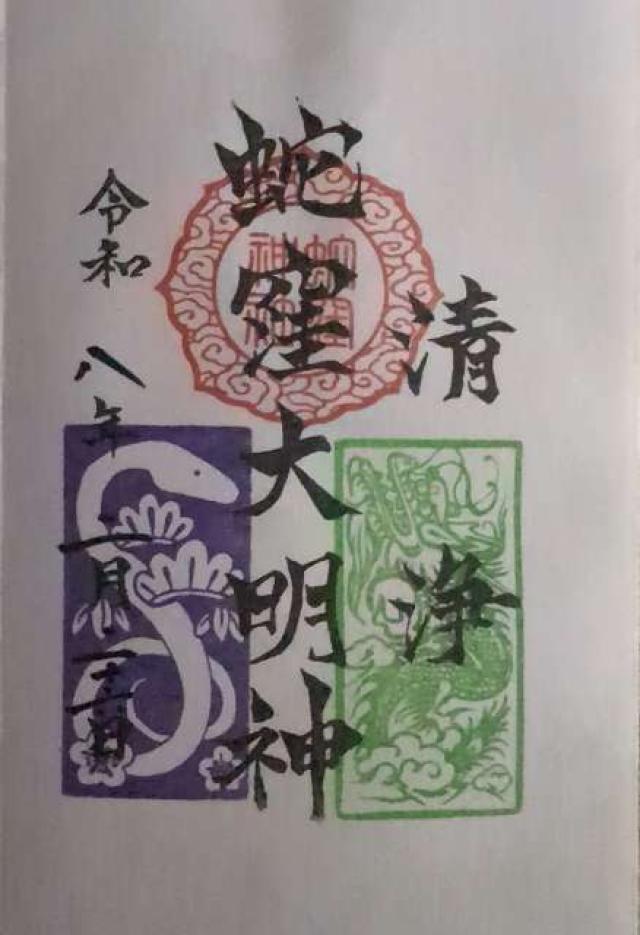 清浄
蛇窪大明神
令和八年二月